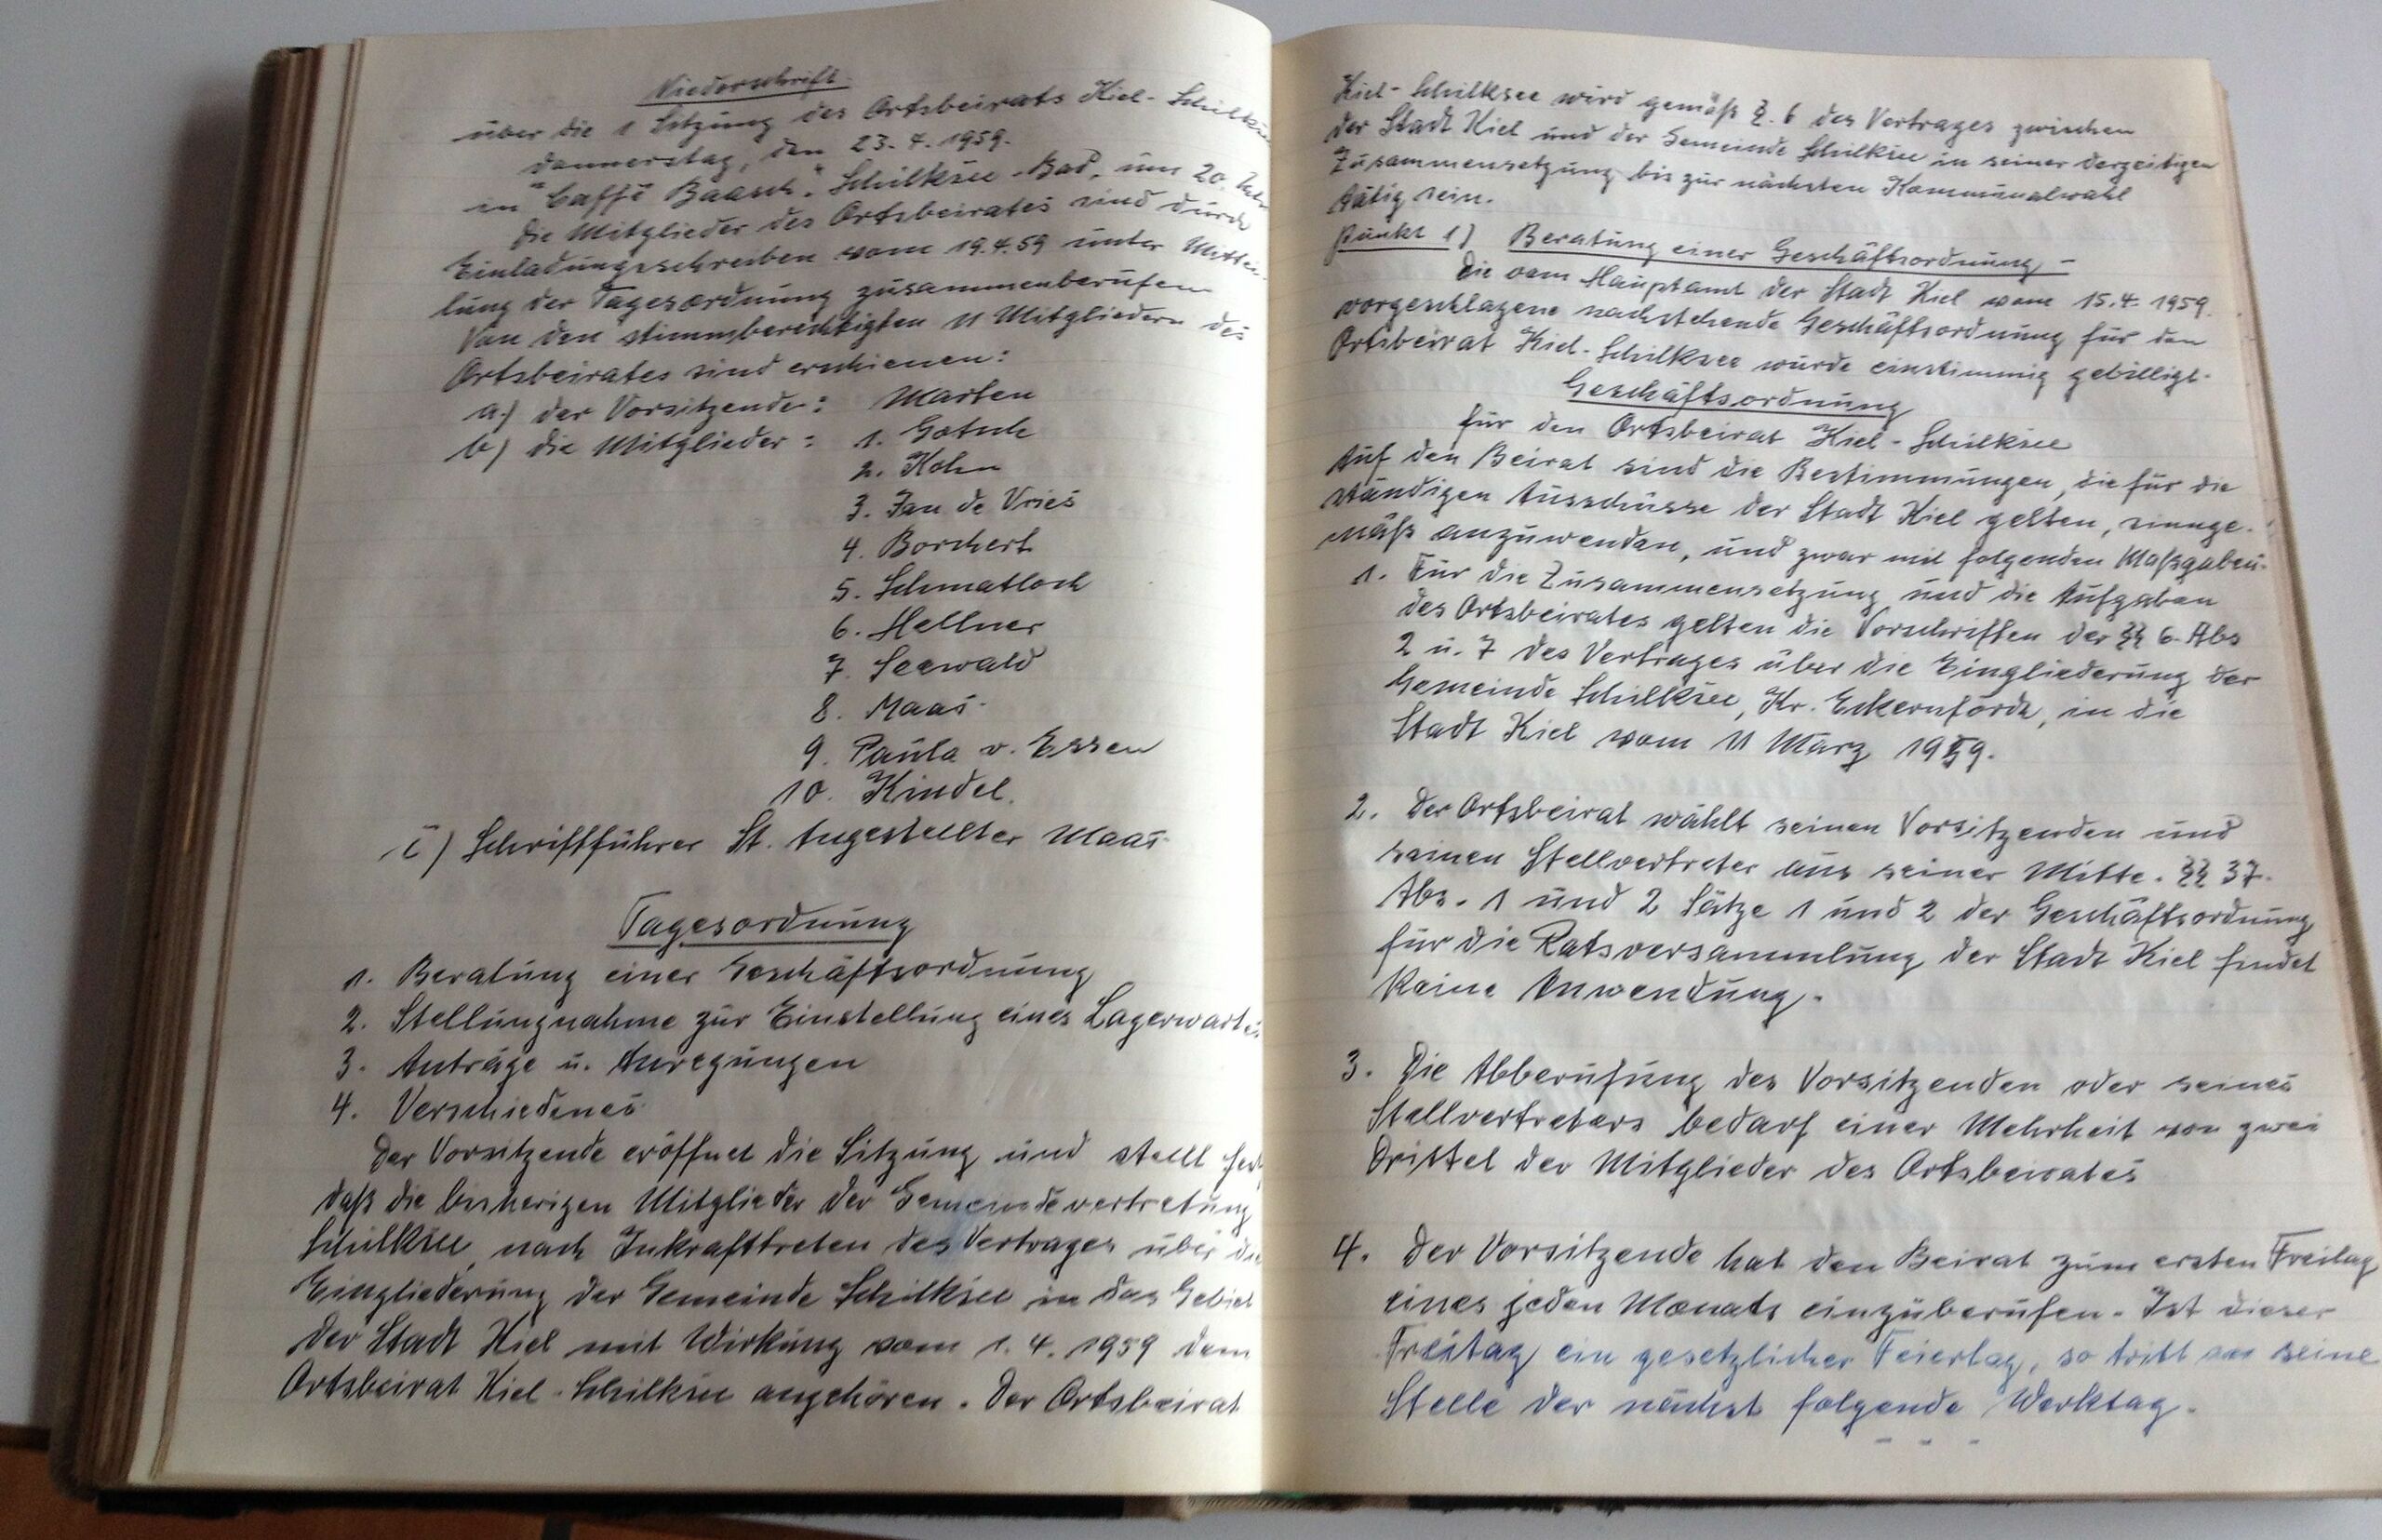 Niederschrift
über die 1 Sitzung des Ortsbeirats Kiel-Schilksee
Donnerstag, den 23.4.1959.
in "Caffé Baasch" Schilksee-Bad, um 20. Uhr
Die Mitglieder des Ortsbeirates sind durch
Einladungsschreiben vom 19.4.59 unter Mittei-
lung der Tagesordnung zusammenberufen
Von den stimmberechtigten 11 Mitgliedern des
Ortsbeirates sind erschienen:
a.) der Vorsitzende: Marten
b) die Mitglieder: 1. Gotsch
2. Kohn
3. Jan de Vries
4. Borchert
5. Schmatloch
6. Hellner
7. Seewald
8. Maas.
9. Paula v. Essen
10. Kindel.
c) Schriftführer St. Angestellter Maas.
Tagesordnung
1. Beratung einer Geschäftsordnung
2. Stellungnahme zur Einstellung eines Lagerwartes
3. Anträge u. Anregungen
4. Verschiedenes
Der Vorsitzende eröffnet die Sitzung und stellt fest
daß die bisherigen Mitglieder der Gemeindevertretung
Schilksee, nach Inkrafttreten des Vertrages über die
Eingliederung der Gemeinde Schilksee in das Gebiet
der Stadt Kiel mit Wirkung vom 1.4.1959 dem
Ortsbeirat Kiel-Schilksee angehören. Der Ortsbeirat
Kiel-Schilksee wird gemäß §.6 des Vertrages zwischen
der Stadt Kiel und der Gemeinde Schilksee in seiner derzeitigen
Zusammensetzung bis zur nächsten Kommunalwahl
tätig sein.
Punkt 1) Beratung einer Geschäftsordnung -
Die vom Hauptamt der Stadt Kiel vom 15.4.1959.
vorgeschlagene nachstehende Geschäftsordnung für den
Ortsbeirat Kiel-Schilksee wurde einstimmig gebilligt.
Geschäftsordnung
für den Ortsbeirat Kiel-Schilksee
Auf den Beirat sind die Bestimmungen, die für die
ständigen Ausschüsse der Stadt Kiel gelten, sinnge-
mäß anzuwenden, und zwar mit folgenden Maßgaben.
1. Für die Zusammensetzung und die Aufgaben
des Ortsbeirates gelten die Vorschriften der §§ 6. Abs
2 u. 7 des Vertrages über die Eingliederung der
Gemeinde Schilksee, Kr. Eckernförde, in die
Stadt Kiel vom 11 März 1959.
2. Der Ortsbeirat wählt seinen Vorsitzenden und
seinen Stellvertreter aus seiner Mitte. §§ 37.
Abs. 1 und 2 Sätze 1 und 2 der Geschäftsordnung
für die Ratsversammlung der Stadt Kiel findet
keine Anwendung.
3. Die Abberufung des Vorsitzenden oder seines
Stellvertreters bedarf einer Mehrheit von zwei
Drittel der Mitglieder des Ortsbeirates
4. Der Vorsitzende hat den Beirat zum ersten Freitag
eines jeden Monats einzuberufen. Ist dieser
Freitag ein gesetzlicher Feiertag, so tritt an seine
Stelle der nächst folgende Werktag.
- - -